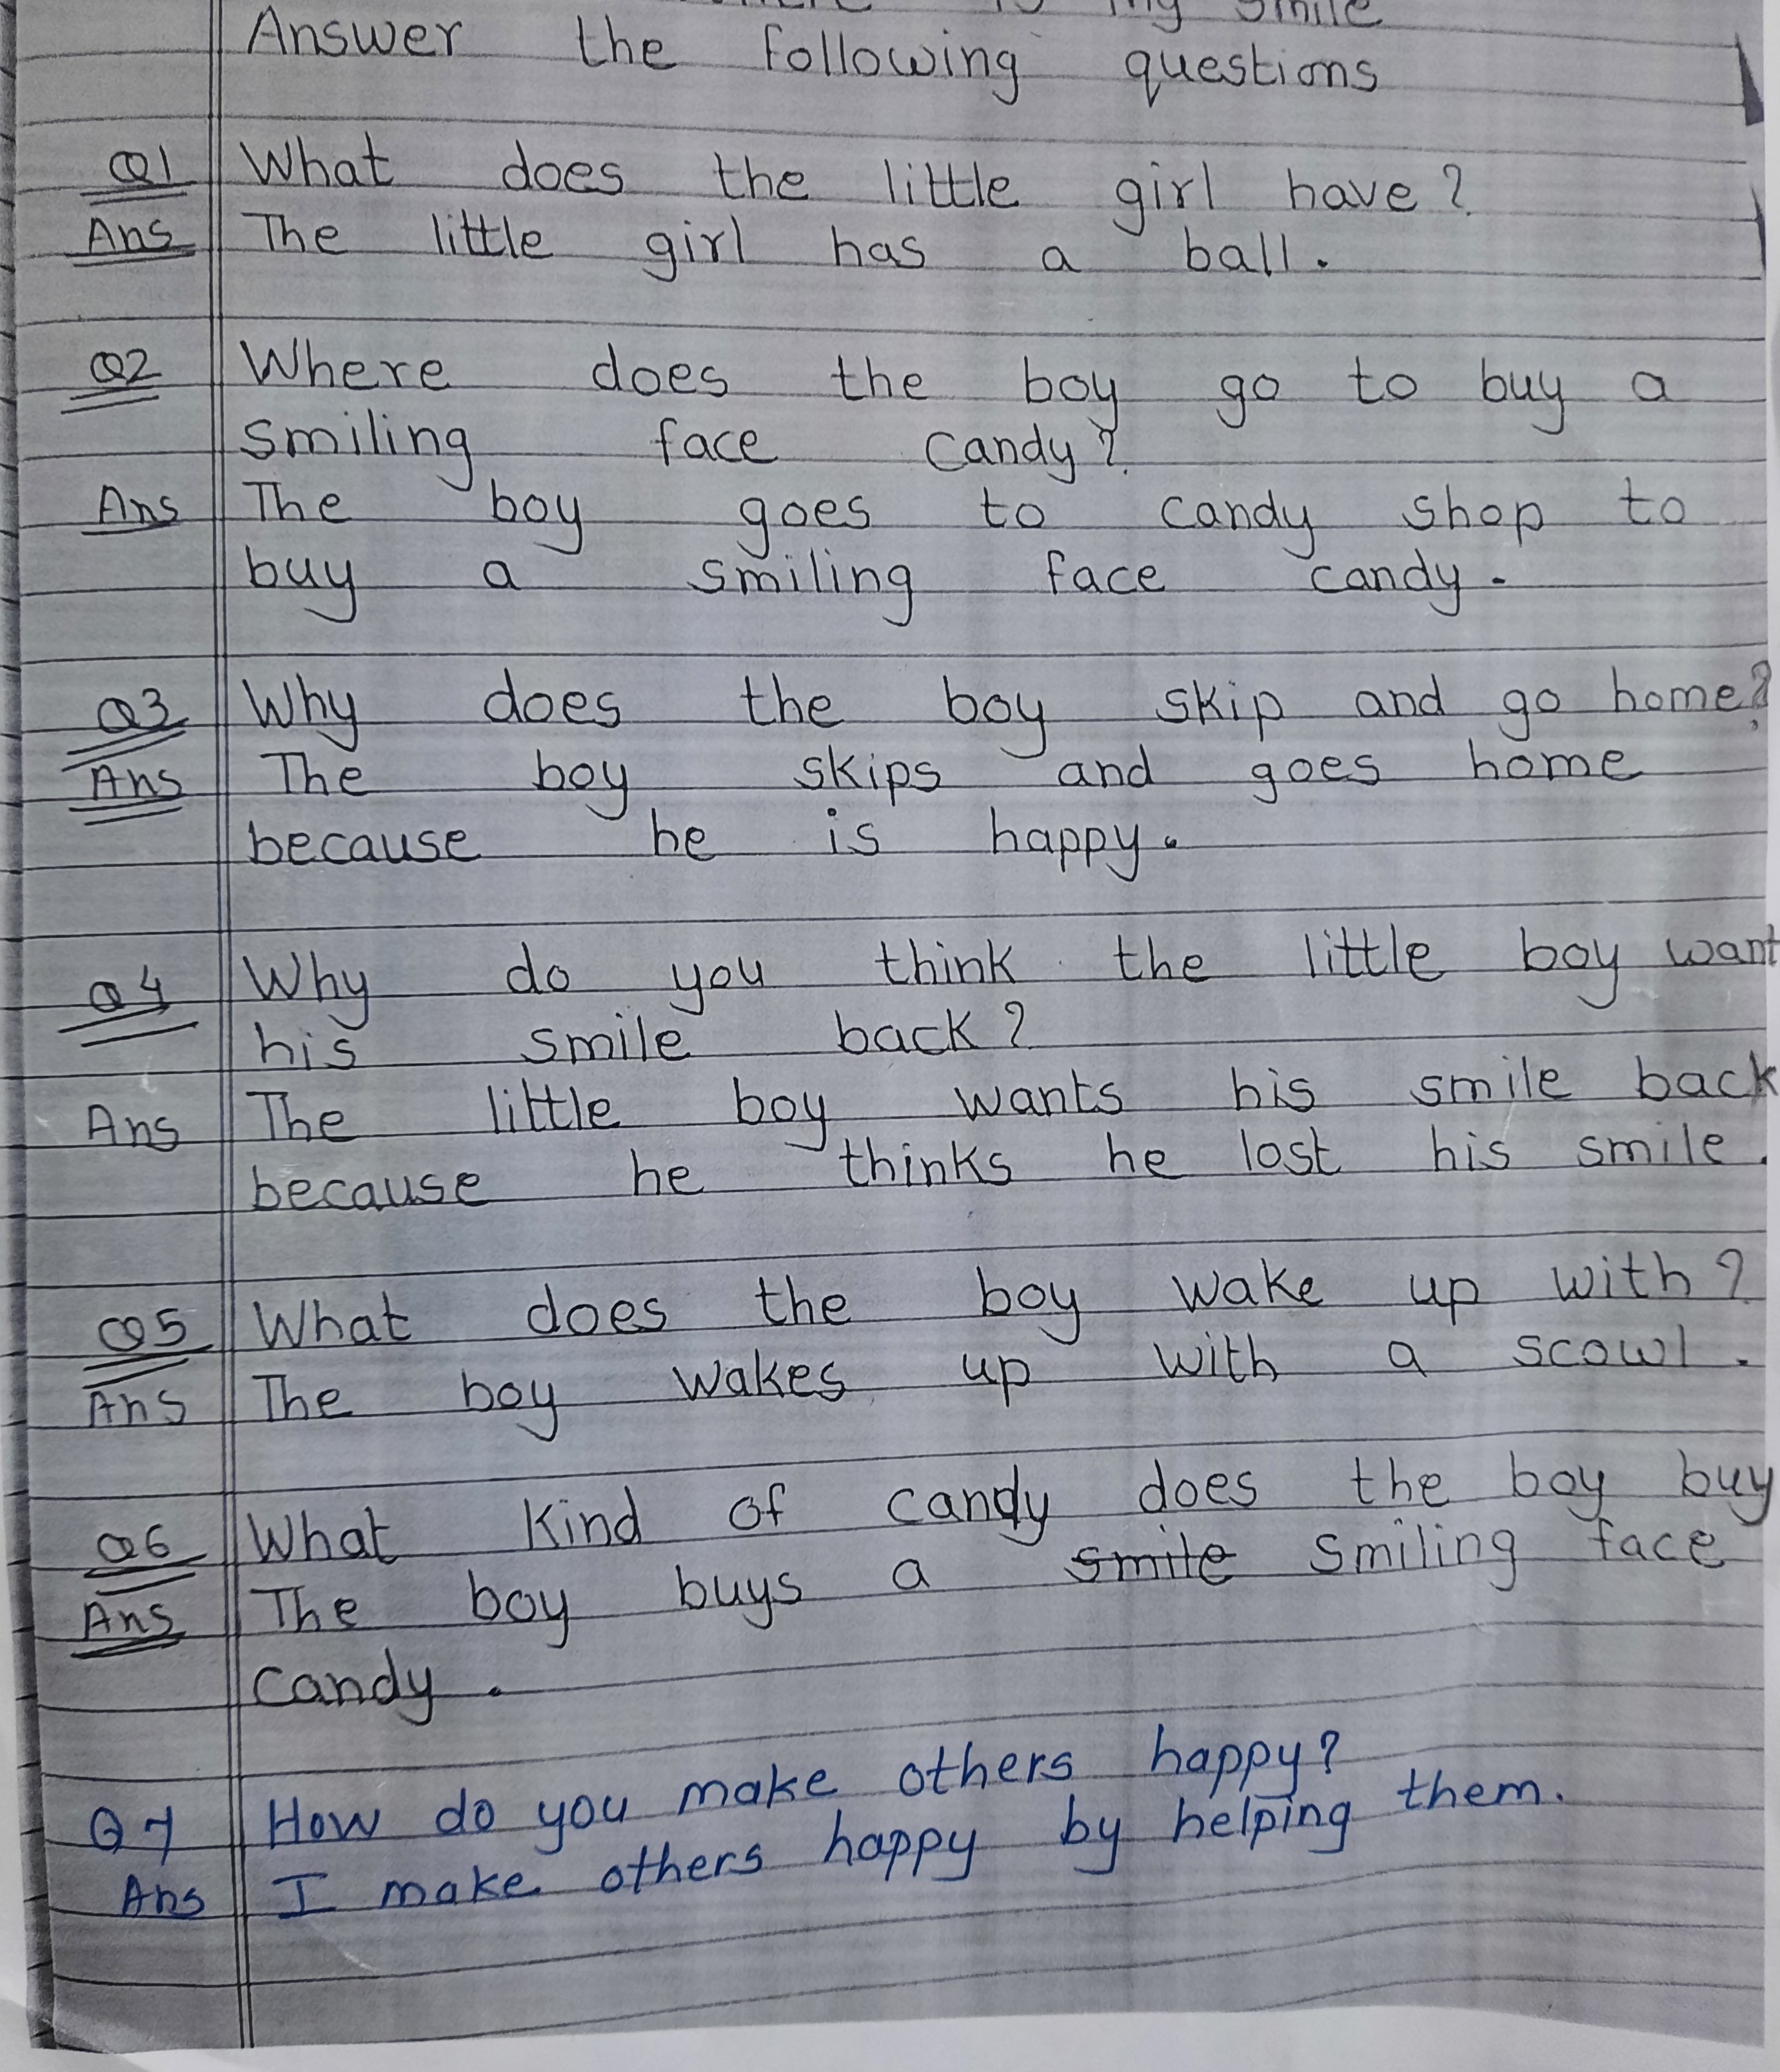 is my smile
Answer the following questions
Q1 What does the little girl have?
Ans The little girl has a ball.
Q2 Where does the boy go to buy a
smiling face candy?
Ans The boy goes to candy shop to
buy a smiling face candy.
Q3 Why does the boy skip and go home?
Ans The boy skips and goes home
because he is happy.
Q4 Why do you think the little boy want
his smile back?
Ans The little boy wants his smile back
because he thinks he lost his smile.
Q5 What does the boy wake up with?
Ans The boy wakes up with a scowl.
Q6 What kind of candy does the boy buy
Ans The boy buys a smile smiling face
candy.
Q7 How do you make others happy?
Ans I make others happy by helping them.